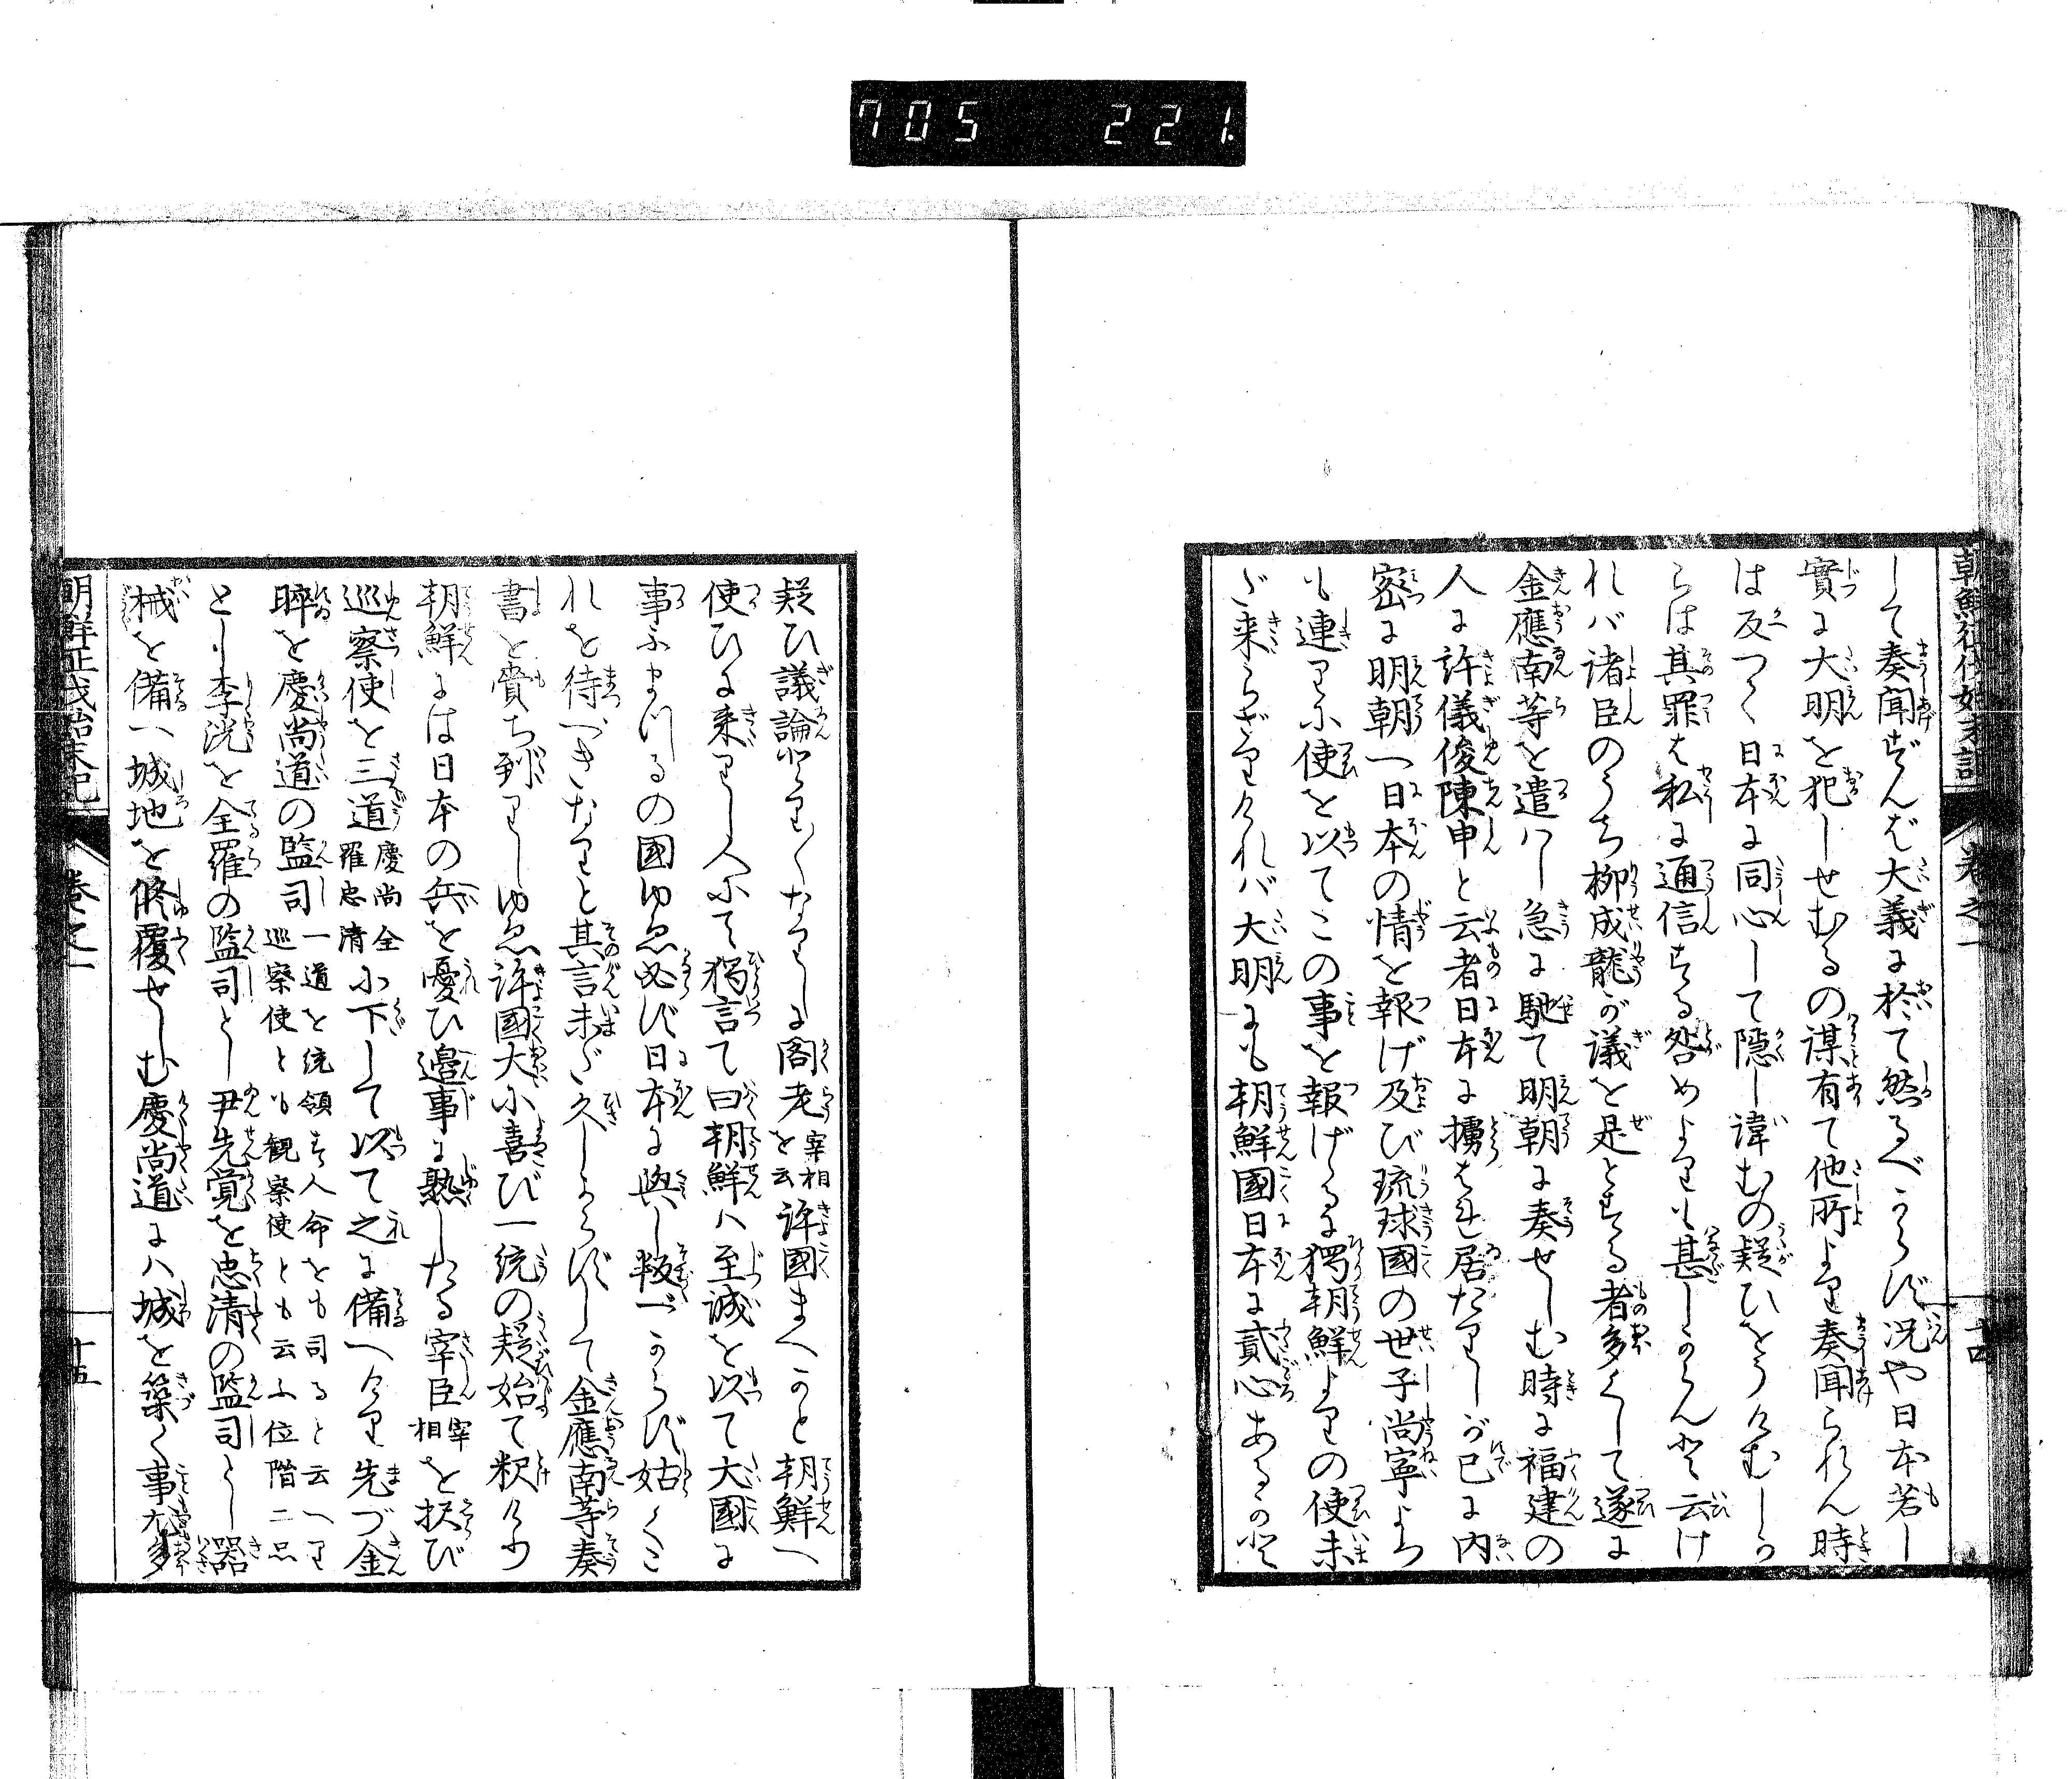 705 221
朝鮮征伐始末記 卷之一 十四
して奏聞せずんば大義に於て然るべからず況や日本若し
實に大明を犯しせむるの謀有て他所より奏聞られん時
は反つく日本に同心して隠し諱むの疑ひをうけむしか
らは其罪は私に通信する咎めよりも甚しからんと云け
れバ諸臣のうち柳成龍が議を是とする者多くして遂に
金應南等を遣ハし急に馳て明朝に奏せしむ時に福建の
人に許儀俊陳申と云者日本に擄はれ居たりしが已に内
密に明朝へ日本の情を報げ及び琉球國の世子尚寧より
も連りに使を以てこの事を報げるに獨朝鮮よりの使未
だ来らざりけれバ大明にも朝鮮國日本に貳心あるかと
疑ひ議論とり〱なりしに閣老 宰相を云 許國まへかと朝鮮へ
使ひに来りし人にて獨言て曰朝鮮ハ至誠を以て大國に
事ふまつるの國ゆゑ必ず日本に與し叛べからず姑くこ
れを待べきなりと其言未だ久しからずして金應南等奏
書を賷ち到りしゆゑ許國大に喜び一統の疑始て釈けり
朝鮮には日本の兵を憂ひ邉事に熟したる宰臣 宰相 を択び
巡察使を三道 慶尚全羅忠清 に下して以て之に備へけり先づ金
睟を慶尚道の監司 一道を統領す人命をも司ると云へり巡察使とも観察使とも云ふ位階二品
とし李洸を全羅の監司とし尹先覚を忠清の監司とし器
械を備へ城地を修覆せしむ慶尚道にハ城を築く事尤多
朝鮮征伐始末記 卷之一 十五